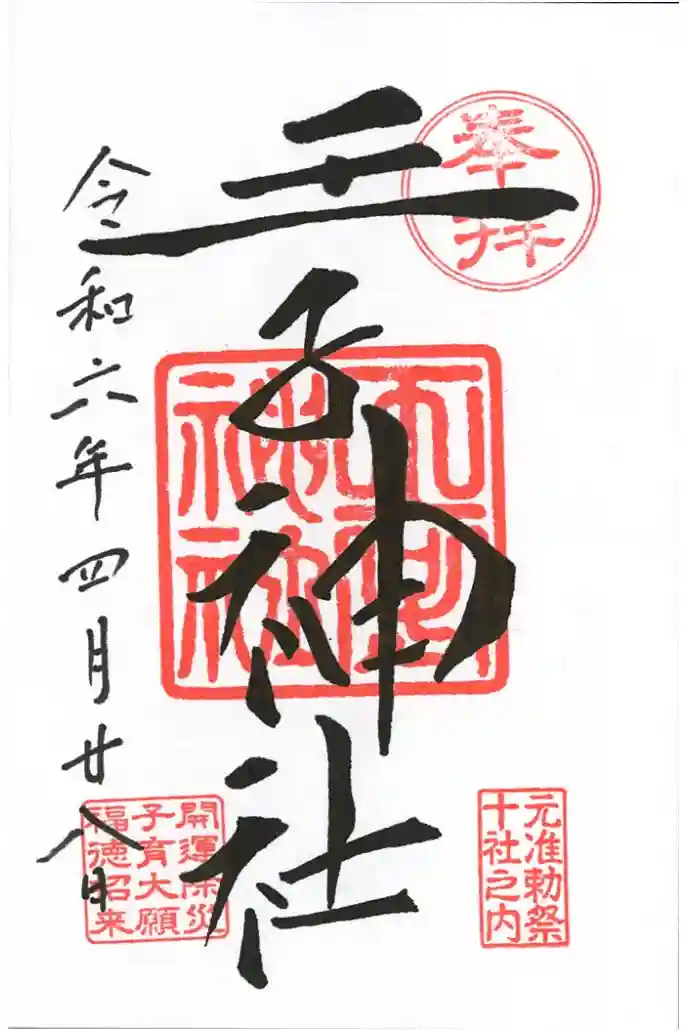 奉拝
王子神社
元准勅祭
十社之内
令和六年四月廿八日
開運除災
子育大願
福徳招来